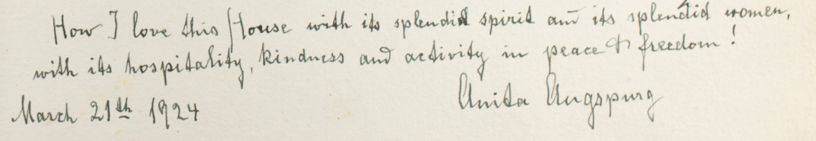 How I love this House with its splendid spirit and its splendid women,
with its hospitality, kindness and activity in peace & freedom!
March 21th 1924 Anita Augspurg